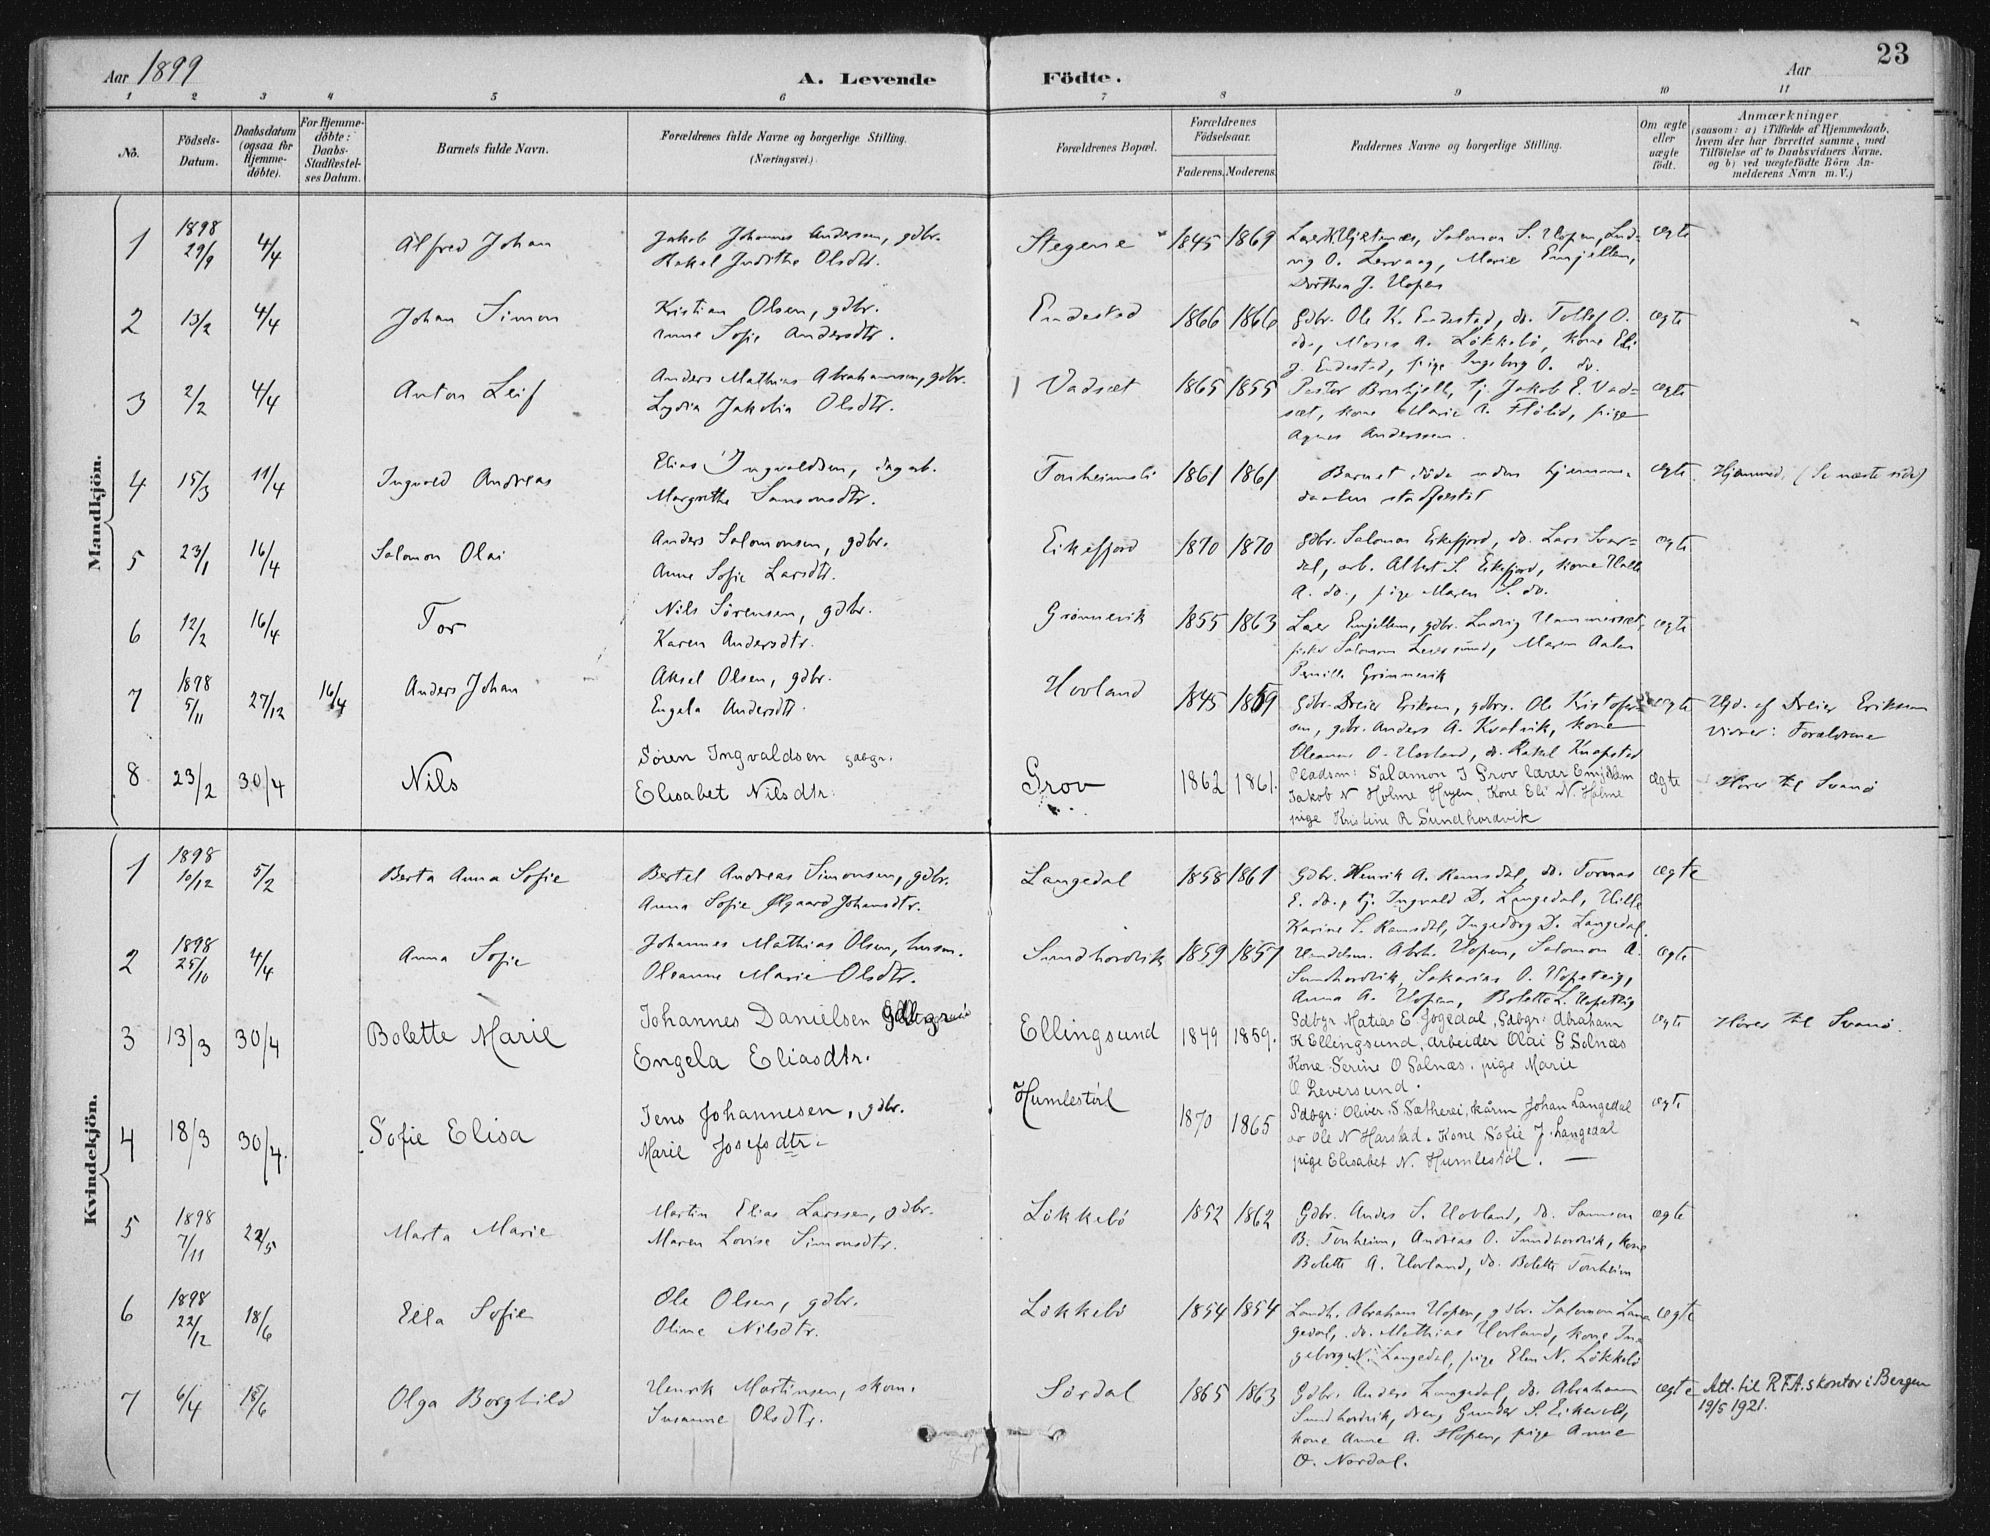 23
Aar 1899
A. Levende
Födte.
Aar
1 2 3 4 5 6 7 8 9 10 11
No.
Födsels-
Datum.
Daabsdatum
(ogsaa for
Hjemme-
döbte).
For Hjemme-
döbte:
Daabs-
Stadfæstel-
ses Datum.
Barnets fulde Navn.
Forældrenes fulde Navne og borgerlige Stilling.
(Næringsvei.)
Forældrenes Bopæl.
Forældrenes
Födselsaar.
Faderens. Moderens.
Faddernes Navne og borgerlige Stilling.
Om ægte
eller
uægte
födt.
Anmærkninger
(saasom: a) i Tilfælde af Hjemmedaab,
hvem der har forrettet samme, med
Tilföielse af to Daabsvidners Navne.
og b) ved uægtefödte Börn An-
melderens Navn m. V.)
Mandkjön.
1 1898 29/9 4/4 Alfred Johan
Jakob Johannes Andersen, gdbr.
Rakel Judithe Olsdtr.
Stegene 1845 1869
Salomon S. Hopen, Lud-
vig O. Lervaag, Marie Emjellem,
Dorthea J. Hopen
ægte
2 13/2 4/4 Johan Simon
Kristian Olsen, gdbr.
Anne Sofie Andersdtr.
Endestad 1866 1866
Gdbr. Ole K. Endestad, do. Tollef O.
do., Moses A. Løkkebø, kone Eli
J. Endestad, pige Ingeborg O. do.
ægte
3 2/2 4/4 Anton Leif
Anders Mathias Abrahamsen, gdbr.
Lydia Jakobia Olsdtr.
Vadsæt 1865 1855
Jakob E. Vad-
sæt, kone Marie A. Flölid, pige
Agnes Anderssen.
ægte
4 15/3 11/4 Ingvald Andreas
Elias Ingvaldsen, dagarb.
Margrethe Samsonsdtr.
Tonheimsli 1861 1861
Barnet döde uden hjemme-
daaben stadfæstet
ægte Hjemmed. (Se næste side)
5 23/1 16/4 Salomon Olai
Anders Salomonsen, gdbr.
Anne Sofie Larsdtr.
Eikefjord 1870 1870
Gdbr. Salomon Eikefjord, do. Lars Svar-
dal, arb. Albert S. Eikefjord, kone
A. do., pige Maren S. do.
ægte
6 12/2 16/4 Tor
Nils Sörensen, gdbr.
Karen Andersdtr.
Grönnevik 1855 1863
Lærer Emjellem, gdbr. Ludvig Hammersæt,
Salomon Leversund, Maren Aalen
Pernille Grönnevik
ægte
7 1898 5/11 27/12 16/4 Anders Johan
Aksel Olsen, gdbr.
Engela Andersdtr.
Hovland 1845 1859
Gdbr. Dreier Eriksen, gdbr. Ole Kristofer-
sen, gdbr. Anders A. Kvalvik, kone
Oleanne O. Hovland, do. Rakel Knapstad
ægte Hjd. af Dreier Eriksen
vidner: Forældrene
8 23/2 30/4 Nils
Sören Ingvaldsen gdbgr.
Elisabet Nilsdtr.
Grov 1862 1861.
Pladsm: Salamon J Grov lærer Emjellem
Jakob N Holme Høyen, Kone Eli N. Holme
pige Kristine R Sundhordvik
ægte Hører til Svanö
Kvindekjön.
1 1898 10/12 5/2 Berta Anna Sofie
Bertel Andreas Simonsen, gdbr.
Anna Sofie Øygaard Johansdtr.
Langedal 1858 1861
Gdbr. Henrik A. Ramsdal, do. Tormas
E. do., tj. Ingvald D. Langedal, Hille
Karine S. Ramsdal, Ingeborg D. Langedal
ægte
2 1898 25/10 4/4 Anna Sofie
Johannes Mathias Olsen, husm.
Oleanne Marie Olsdtr.
Sundhordvik 1859 1857
Handelsm. Abrh. Hopen, Salomon A.
Sundhordvik, Sakarias O. Hopsteig,
Anna A. Hopen, Bolette L. Hopsteig
ægte
3 13/3 30/4 Bolette Marie
Johannes Danielsen Gdbgr
Engela Eliasdtr.
Ellingsund 1849 1859.
Gdbgr Matias E Jogedal, Gdbgr: Abraham
K Ellingsund, arbeider Olai G Solnæs
Kone Serine O Solnæs. pige Marie
O Leversund.
ægte Hører til Svanö.
4 18/3 30/4. Sofie Elisa
Jens Johannesen, gdbr.
Marie Josefsdtr.
Humlestöl 1870 1865
Gdbgr: Oliver S Sætherei, kårm Johan Langedal
av Ole N Harstad. Kone Sofie J. Langedal
pige Elisabet N. Humlestöl.
ægte
5 1898 7/11 22/5 Marta Marie
Martin Elias Larssen, gdbr.
Maren Lovise Simonsdtr.
Lökkebö 1852 1862
Gdbr. Anders S. Hovland, do. Samson
B. Tonheim, Andreas O. Sundhordvik, kone
Bolette A. Hovland, do. Bolette Tonheim
ægte
6 1898 22/12 18/6 Ella Sofie
Ole Olsen, gdbr.
Oline Nilsdtr.
Lökkebö 1854 1854
Landh. Abraham Hopen, gdbr. Salomon Lan-
gedal, do. Mathias Hovland, kone In-
geborg N. Langedal, pige Elen N. Lökkebö
ægte
7 6/4 18/6 Olga Borghild
Henrik Martinsen, skom.
Susanne Olsdtr.
Sördal 1865 1863
Gdbr. Anders Langedal, do. Abraham
Sundhordvik, dreng Gunder S. Eikevold,
kone Anne A. Hopen, pige Anne
O. Nordal.
ægte Att. til R.F.A.s kontor i Bergen
19/5 1921.